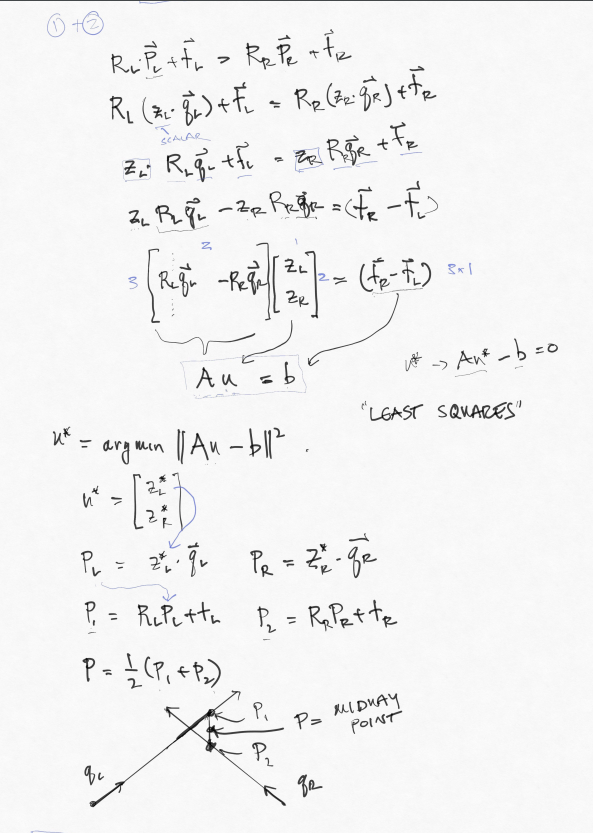 ① + ②
R_L · P⃗_L + t⃗_L = R_R P⃗_R + t⃗_R
R_L (z_L · q⃗_L) + t⃗_L = R_R (z_R · q⃗_R) + t⃗_R
SCALAR
z_L · R_L q⃗_L + t⃗_L = z_R R_R q⃗_R + t⃗_R
z_L R_L q⃗_L − z_R R_R q⃗_R = (t⃗_R − t⃗_L)
2 1
3 [ R_L q⃗_L −R_R q⃗_R ] [ z_L z_R ] 2 = (t⃗_R − t⃗_L) 3×1
A u = b
u* → Au* − b = 0
"LEAST SQUARES"
u* = argmin ‖Au − b‖² .
u* = [ z_L* z_R* ]
P_L = z_L* · q⃗_L P_R = z_R* · q⃗_R
P_1 = R_L P_L + t_L P_2 = R_R P_R + t_R
P = 1/2 (P_1 + P_2)
P_1
P = MIDWAY POINT
P_2
q_L q_R